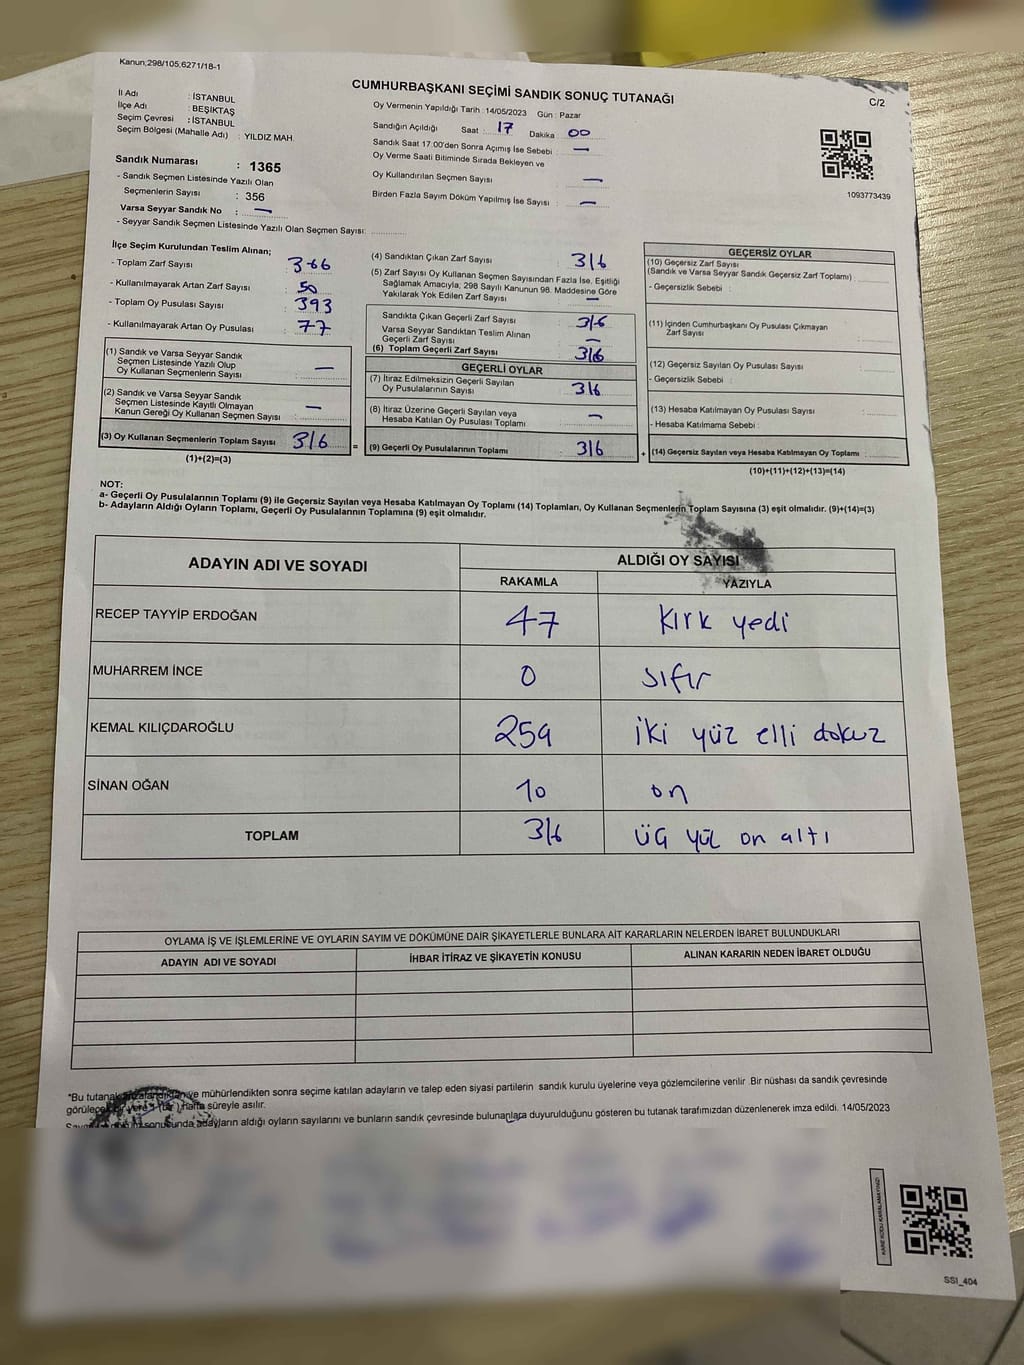 Kanun;298/105;6271/18-1
CUMHURBAŞKANI SEÇİMİ SANDIK SONUÇ TUTANAĞI
C/2
İl Adı : İSTANBUL
İlçe Adı : BEŞİKTAŞ
Seçim Çevresi : İSTANBUL
Seçim Bölgesi (Mahalle Adı) : YILDIZ MAH.
Sandık Numarası : 1365
- Sandık Seçmen Listesinde Yazılı Olan
Seçmenlerin Sayısı : 356
Varsa Seyyar Sandık No : —
- Seyyar Sandık Seçmen Listesinde Yazılı Olan Seçmen Sayısı:
Oy Vermenin Yapıldığı Tarih : 14/05/2023 Gün : Pazar
Sandığın Açıldığı Saat : 17 Dakika : 00
Sandık Saat 17:00'den Sonra Açımış İse Sebebi : —
Oy Verme Saati Bitiminde Sırada Bekleyen ve
Oy Kullandırılan Seçmen Sayısı : —
Birden Fazla Sayım Döküm Yapılmış İse Sayısı : —
1093773439
İlçe Seçim Kurulundan Teslim Alınan;
- Toplam Zarf Sayısı : 366
- Kullanılmayarak Artan Zarf Sayısı : 50
- Toplam Oy Pusulası Sayısı : 393
- Kullanılmayarak Artan Oy Pusulası : 77
(1) Sandık ve Varsa Seyyar Sandık
Seçmen Listesinde Yazılı Olup
Oy Kullanan Seçmenlerin Sayısı : —
(2) Sandık ve Varsa Seyyar Sandık
Seçmen Listesinde Kayıtlı Olmayan
Kanun Gereği Oy Kullanan Seçmen Sayısı : —
(3) Oy Kullanan Seçmenlerin Toplam Sayısı : 316 =
(1)+(2)=(3)
(4) Sandıktan Çıkan Zarf Sayısı : 316
(5) Zarf Sayısı Oy Kullanan Seçmen Sayısından Fazla İse, Eşitliği
Sağlamak Amacıyla, 298 Sayılı Kanunun 98. Maddesine Göre
Yakılarak Yok Edilen Zarf Sayısı : —
Sandıkta Çıkan Geçerli Zarf Sayısı : 316
Varsa Seyyar Sandıktan Teslim Alınan
Geçerli Zarf Sayısı : —
(6) Toplam Geçerli Zarf Sayısı : 316
GEÇERLİ OYLAR
(7) İtiraz Edilmeksizin Geçerli Sayılan
Oy Pusulalarının Sayısı : 316
(8) İtiraz Üzerine Geçerli Sayılan veya
Hesaba Katılan Oy Pusulası Toplamı : —
(9) Geçerli Oy Pusulalarının Toplamı : 316 +
GEÇERSİZ OYLAR
(10) Geçersiz Zarf Sayısı
(Sandık ve Varsa Seyyar Sandık Geçersiz Zarf Toplamı) :
- Geçersizlik Sebebi :
(11) İçinden Cumhurbaşkanı Oy Pusulası Çıkmayan
Zarf Sayısı :
(12) Geçersiz Sayılan Oy Pusulası Sayısı :
- Geçersizlik Sebebi :
(13) Hesaba Katılmayan Oy Pusulası Sayısı :
- Hesaba Katılmama Sebebi :
(14) Geçersiz Sayılan veya Hesaba Katılmayan Oy Toplamı :
(10)+(11)+(12)+(13)=(14)
NOT:
a- Geçerli Oy Pusulalarının Toplamı (9) ile Geçersiz Sayılan veya Hesaba Katılmayan Oy Toplamı (14) Toplamları, Oy Kullanan Seçmenlerin Toplam Sayısına (3) eşit olmalıdır. (9)+(14)=(3)
b- Adayların Aldığı Oyların Toplamı, Geçerli Oy Pusulalarının Toplamına (9) eşit olmalıdır.
ADAYIN ADI VE SOYADI ALDIĞI OY SAYISI
RAKAMLA YAZIYLA
RECEP TAYYİP ERDOĞAN 47 Kırk yedi
MUHARREM İNCE 0 sıfır
KEMAL KILIÇDAROĞLU 259 iki yüz elli dokuz
SİNAN OĞAN 10 on
TOPLAM 316 üç yüz on altı
OYLAMA İŞ VE İŞLEMLERİNE VE OYLARIN SAYIM VE DÖKÜMÜNE DAİR ŞİKAYETLERLE BUNLARA AİT KARARLARIN NELERDEN İBARET BULUNDUKLARI
ADAYIN ADI VE SOYADI İHBAR İTİRAZ VE ŞİKAYETİN KONUSU ALINAN KARARIN NEDEN İBARET OLDUĞU
*Bu tutanak ve mühürlendikten sonra seçime katılan adayların ve talep eden siyasi partilerin sandık kurulu üyelerine veya gözlemcilerine verilir .Bir nüshası da sandık çevresinde
görülecek bir yere 1 (bir) hafta süreyle asılır.
sonucunda adayların aldığı oyların sayılarını ve bunların sandık çevresinde bulunanlara duyurulduğunu gösteren bu tutanak tarafımızdan düzenlenerek imza edildi. 14/05/2023
KARE KODU KARALAMAYINIZ!
SSI_404